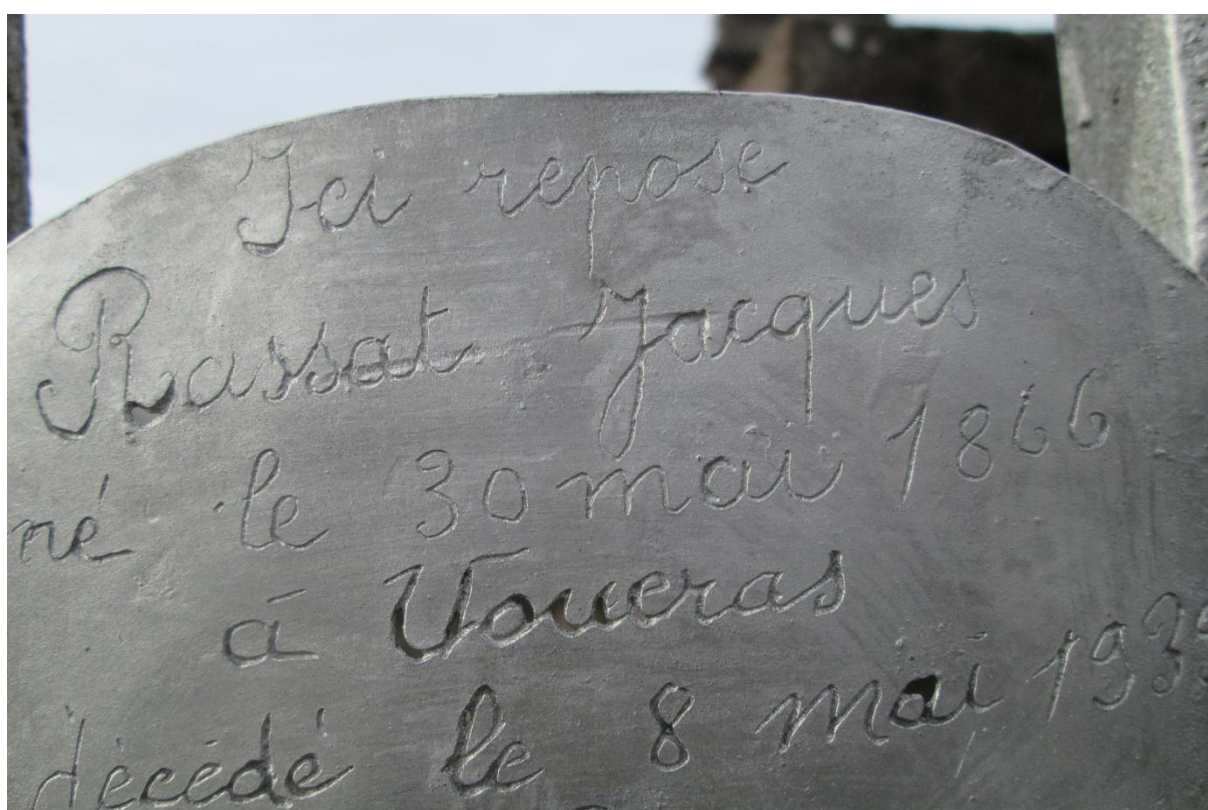 Ici repose
Rassat Jacques
né le 30 mai 1866
à Voueras
décédé le 8 mai